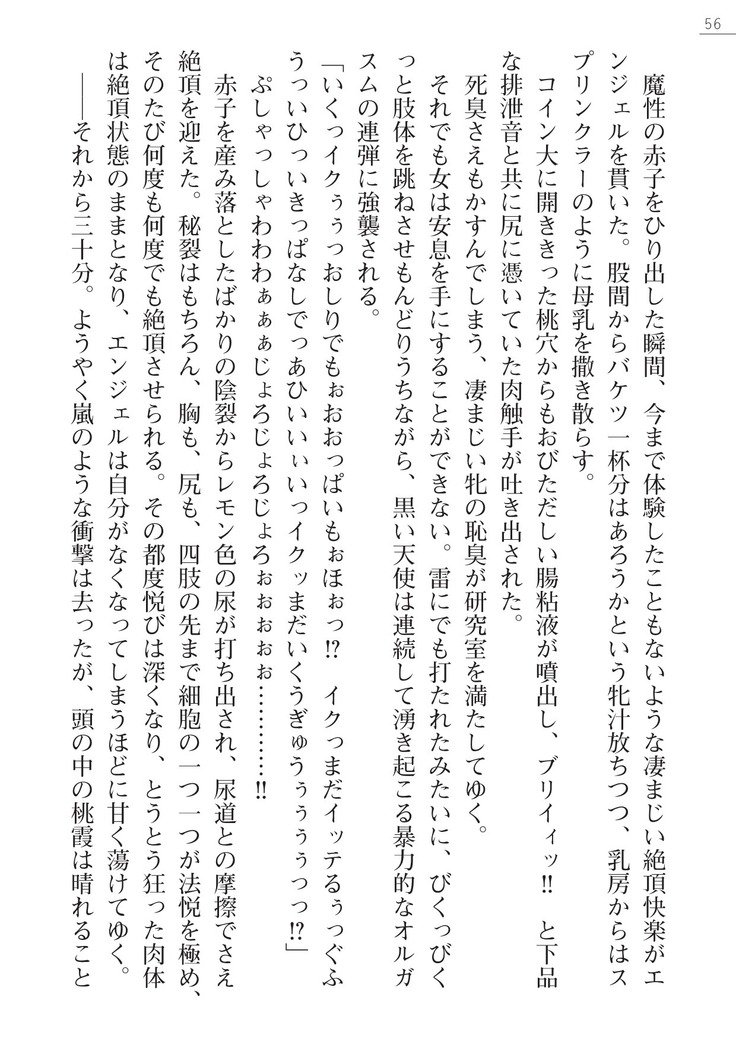 56
魔性の赤子をひり出した瞬間、今まで体験したこともないような凄まじい絶頂快楽がエ
ンジェルを貫いた。股間からバケツ一杯分はあろうかという牝汁放ちつつ、乳房からはス
プリンクラーのように母乳を撒き散らす。
コイン大に開ききった桃穴からもおびただしい腸粘液が噴出し、ブリイィッ‼　と下品
な排泄音と共に尻に憑いていた肉触手が吐き出された。
死臭さえもかすんでしまう、凄まじい牝の恥臭が研究室を満たしてゆく。
それでも女は安息を手にすることができない。雷にでも打たれたみたいに、びくっびく
っと肢体を跳ねさせもんどりうちながら、黒い天使は連続して湧き起こる暴力的なオルガ
スムの連弾に強襲される。
「いくっイクぅぅっおしりでもぉおおっぱいもぉほぉっ⁉　イクっまだイッテるぅっぐふ
うっいひっいきっぱなしでっあひいいぃいっイクッまだいくうぎゅうぅぅぅぅっっ⁉」
ぷしゃっしゃわわわぁぁぁじょろじょろじょろぉぉぉぉぉ…………‼
赤子を産み落としたばかりの陰裂からレモン色の尿が打ち出され、尿道との摩擦でさえ
絶頂を迎えた。秘裂はもちろん、胸も、尻も、四肢の先まで細胞の一つ一つが法悦を極め、
そのたび何度も何度でも絶頂させられる。その都度悦びは深くなり、とうとう狂った肉体
は絶頂状態のままとなり、エンジェルは自分がなくなってしまうほどに甘く蕩けてゆく。
――それから三十分。ようやく嵐のような衝撃は去ったが、頭の中の桃霞は晴れること